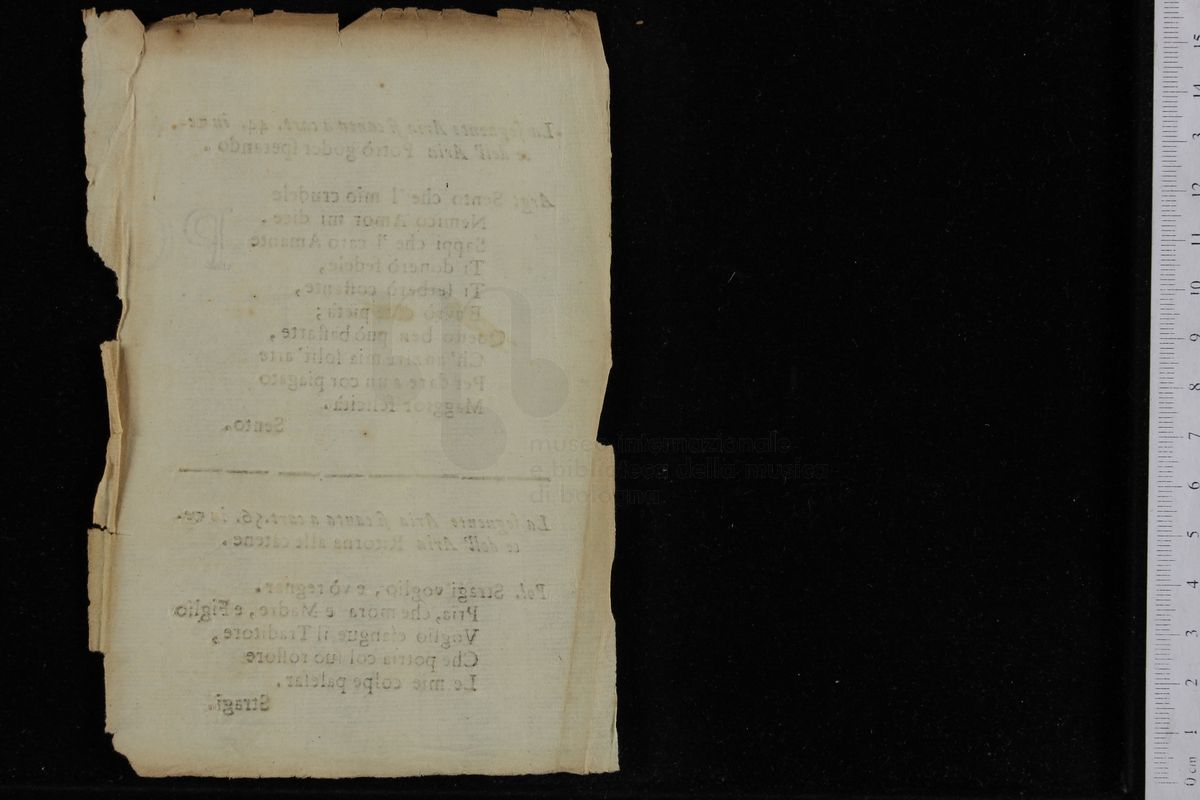 La seguente Aria si canta a cart. 44. in ve-
ce dell' Aria Potrò goder sperando.
Arg: Sento che 'l mio crudele
Nemico Amor mi dice.
Sappi che 'l caro Amante
Ti donerò fedele,
Ti serberò costante,
pietà;
ben può bastarte,
mia solit' arte
Per dare a un cor piagato
Maggior felicità.
Sento.
La seguente Aria si canta a cart. 56. in ve-
ce dell' Aria Ritorna alle catene.
Pol. Stragi voglio, e vò regnar.
Pria, che mora e Madre, e Figlio
Voglio esangue il Traditore,
Che potria col suo rossore
Le mie colpe palesar.
Stragi.
museo internazionale
e biblioteca della musica
di bologna
0 cm 1 2 3 4 5 6 7 8 9 10 11 12 13 14 15